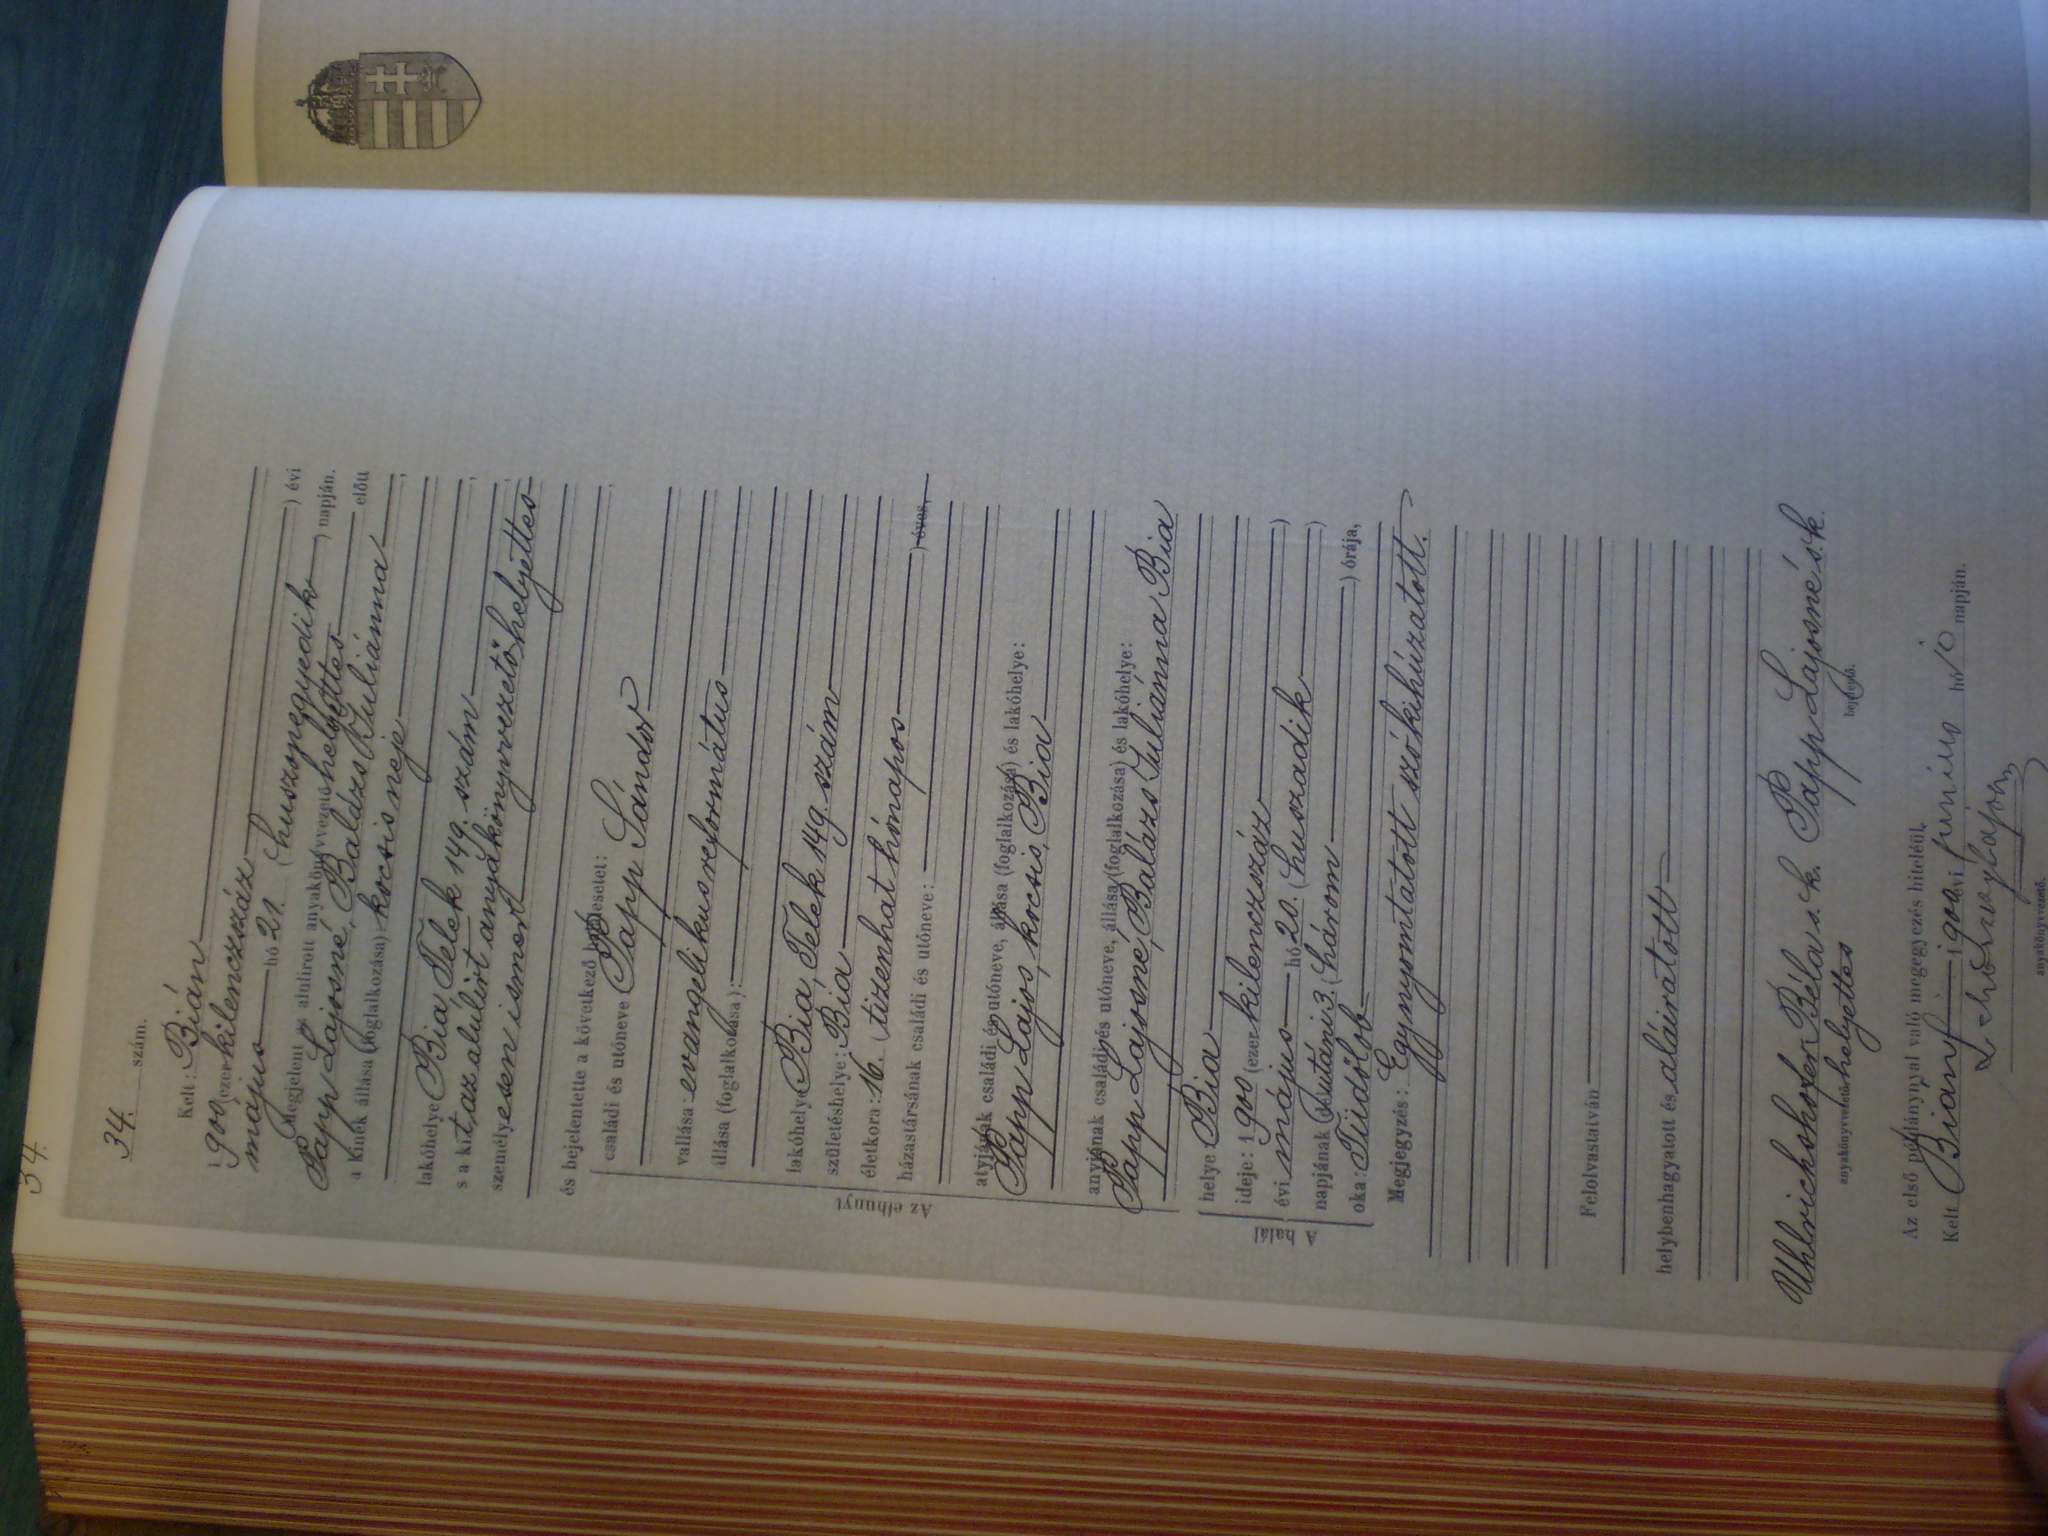 34.
34. szám.
Kelt: Bián
1900 (ezerkilenczszáz ) évi
május hó 21. (huszonegyedik ) napján.
Megjelent az alulirott anyakönyvvezető helyettes előtt
Papp Lajosné, Balázs Juliánna
a kinek állása (foglalkozása) kocsis neje
lakóhelye Bia Telek 149. szám
s a kit az alulirt anyakönyvvezetőhelyettes
személyesen ismer
és bejelentette a következő halálesetet:
Az elhunyt
családi és utóneve Papp Sándor
vallása: evangelikus református
állása (foglalkozása):
lakóhelye Bia, Telek 149. szám
születéshelye: Bia
életkora: 16. (tizenhat hónapos ) éves,
házastársának családi és utóneve:
atyjának családi és utóneve, állása (foglalkozása) és lakóhelye:
Papp Lajos, kocsis, Bia
anyjának családi és utóneve, állása (foglalkozása) és lakóhelye:
Papp Lajosné, Balázs Juliánna Bia
A halál
helye Bia
ideje: 1900 (ezerkilenczszáz )
évi május hó 20. (huszadik )
napjának délutáni 3. (három ) órája,
oka: Tüdőlob
Megjegyzés: Egy nyomtatott szó kihúzatott.
Felolvastatván
helybenhagyatott és aláiratott
Uhlrichshofer Béla s. k. Papp Lajosné s.k.
anyakönyvvezető helyettes bejelentő.
Az első példánynyal való megegyezés hiteléül.
Kelt Bián 1900 évi junius hó 10 napján.
anyakönyvvezető.